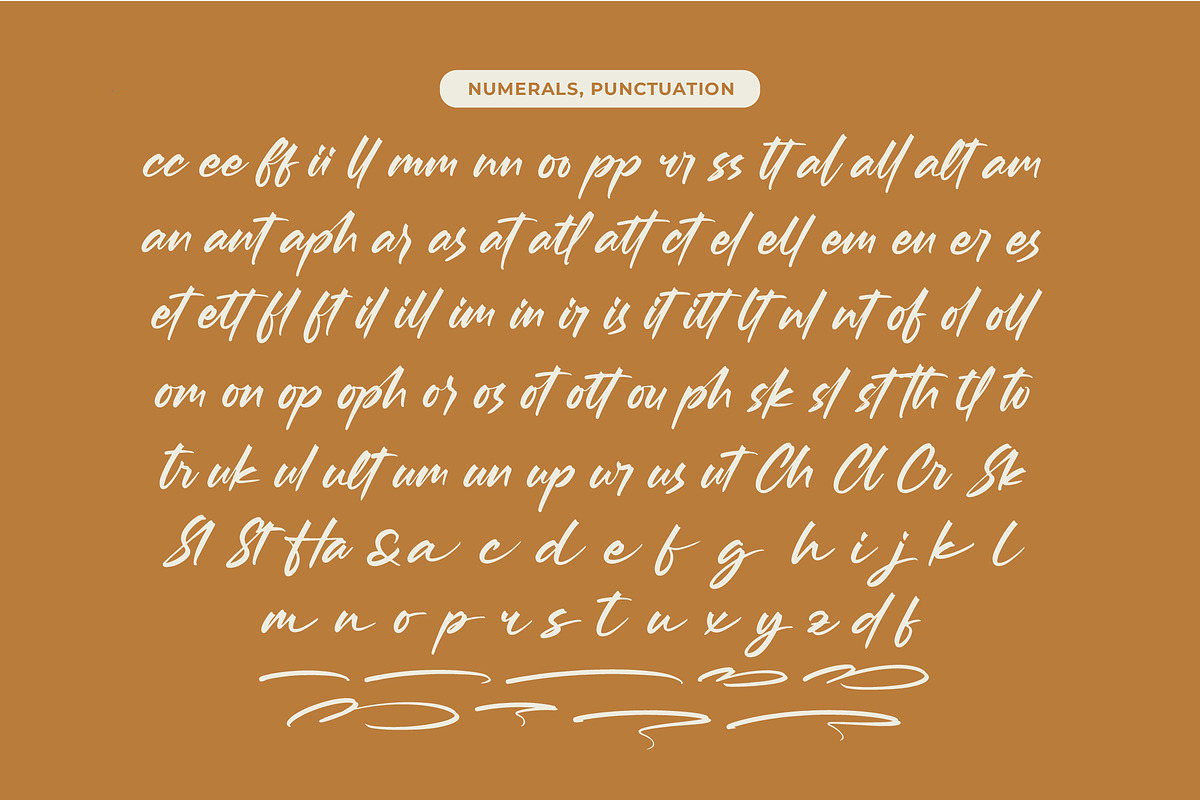 NUMERALS, PUNCTUATION
cc ee ff ii ll mm nn oo pp rr ss tt al all alt am
an ant aph ar as at atl att ct el ell em en er es
et ett fl ft il ill im in ir is it itt lt nl nt of ol oll
om on op oph or os ot ott ou ph sk sl st th tl to
tr uk ul ult um un up ur us ut Ch Cl Cr Sk
Sl St Ha & a c d e f g h i j k l
m n o p r s t u x y z d f